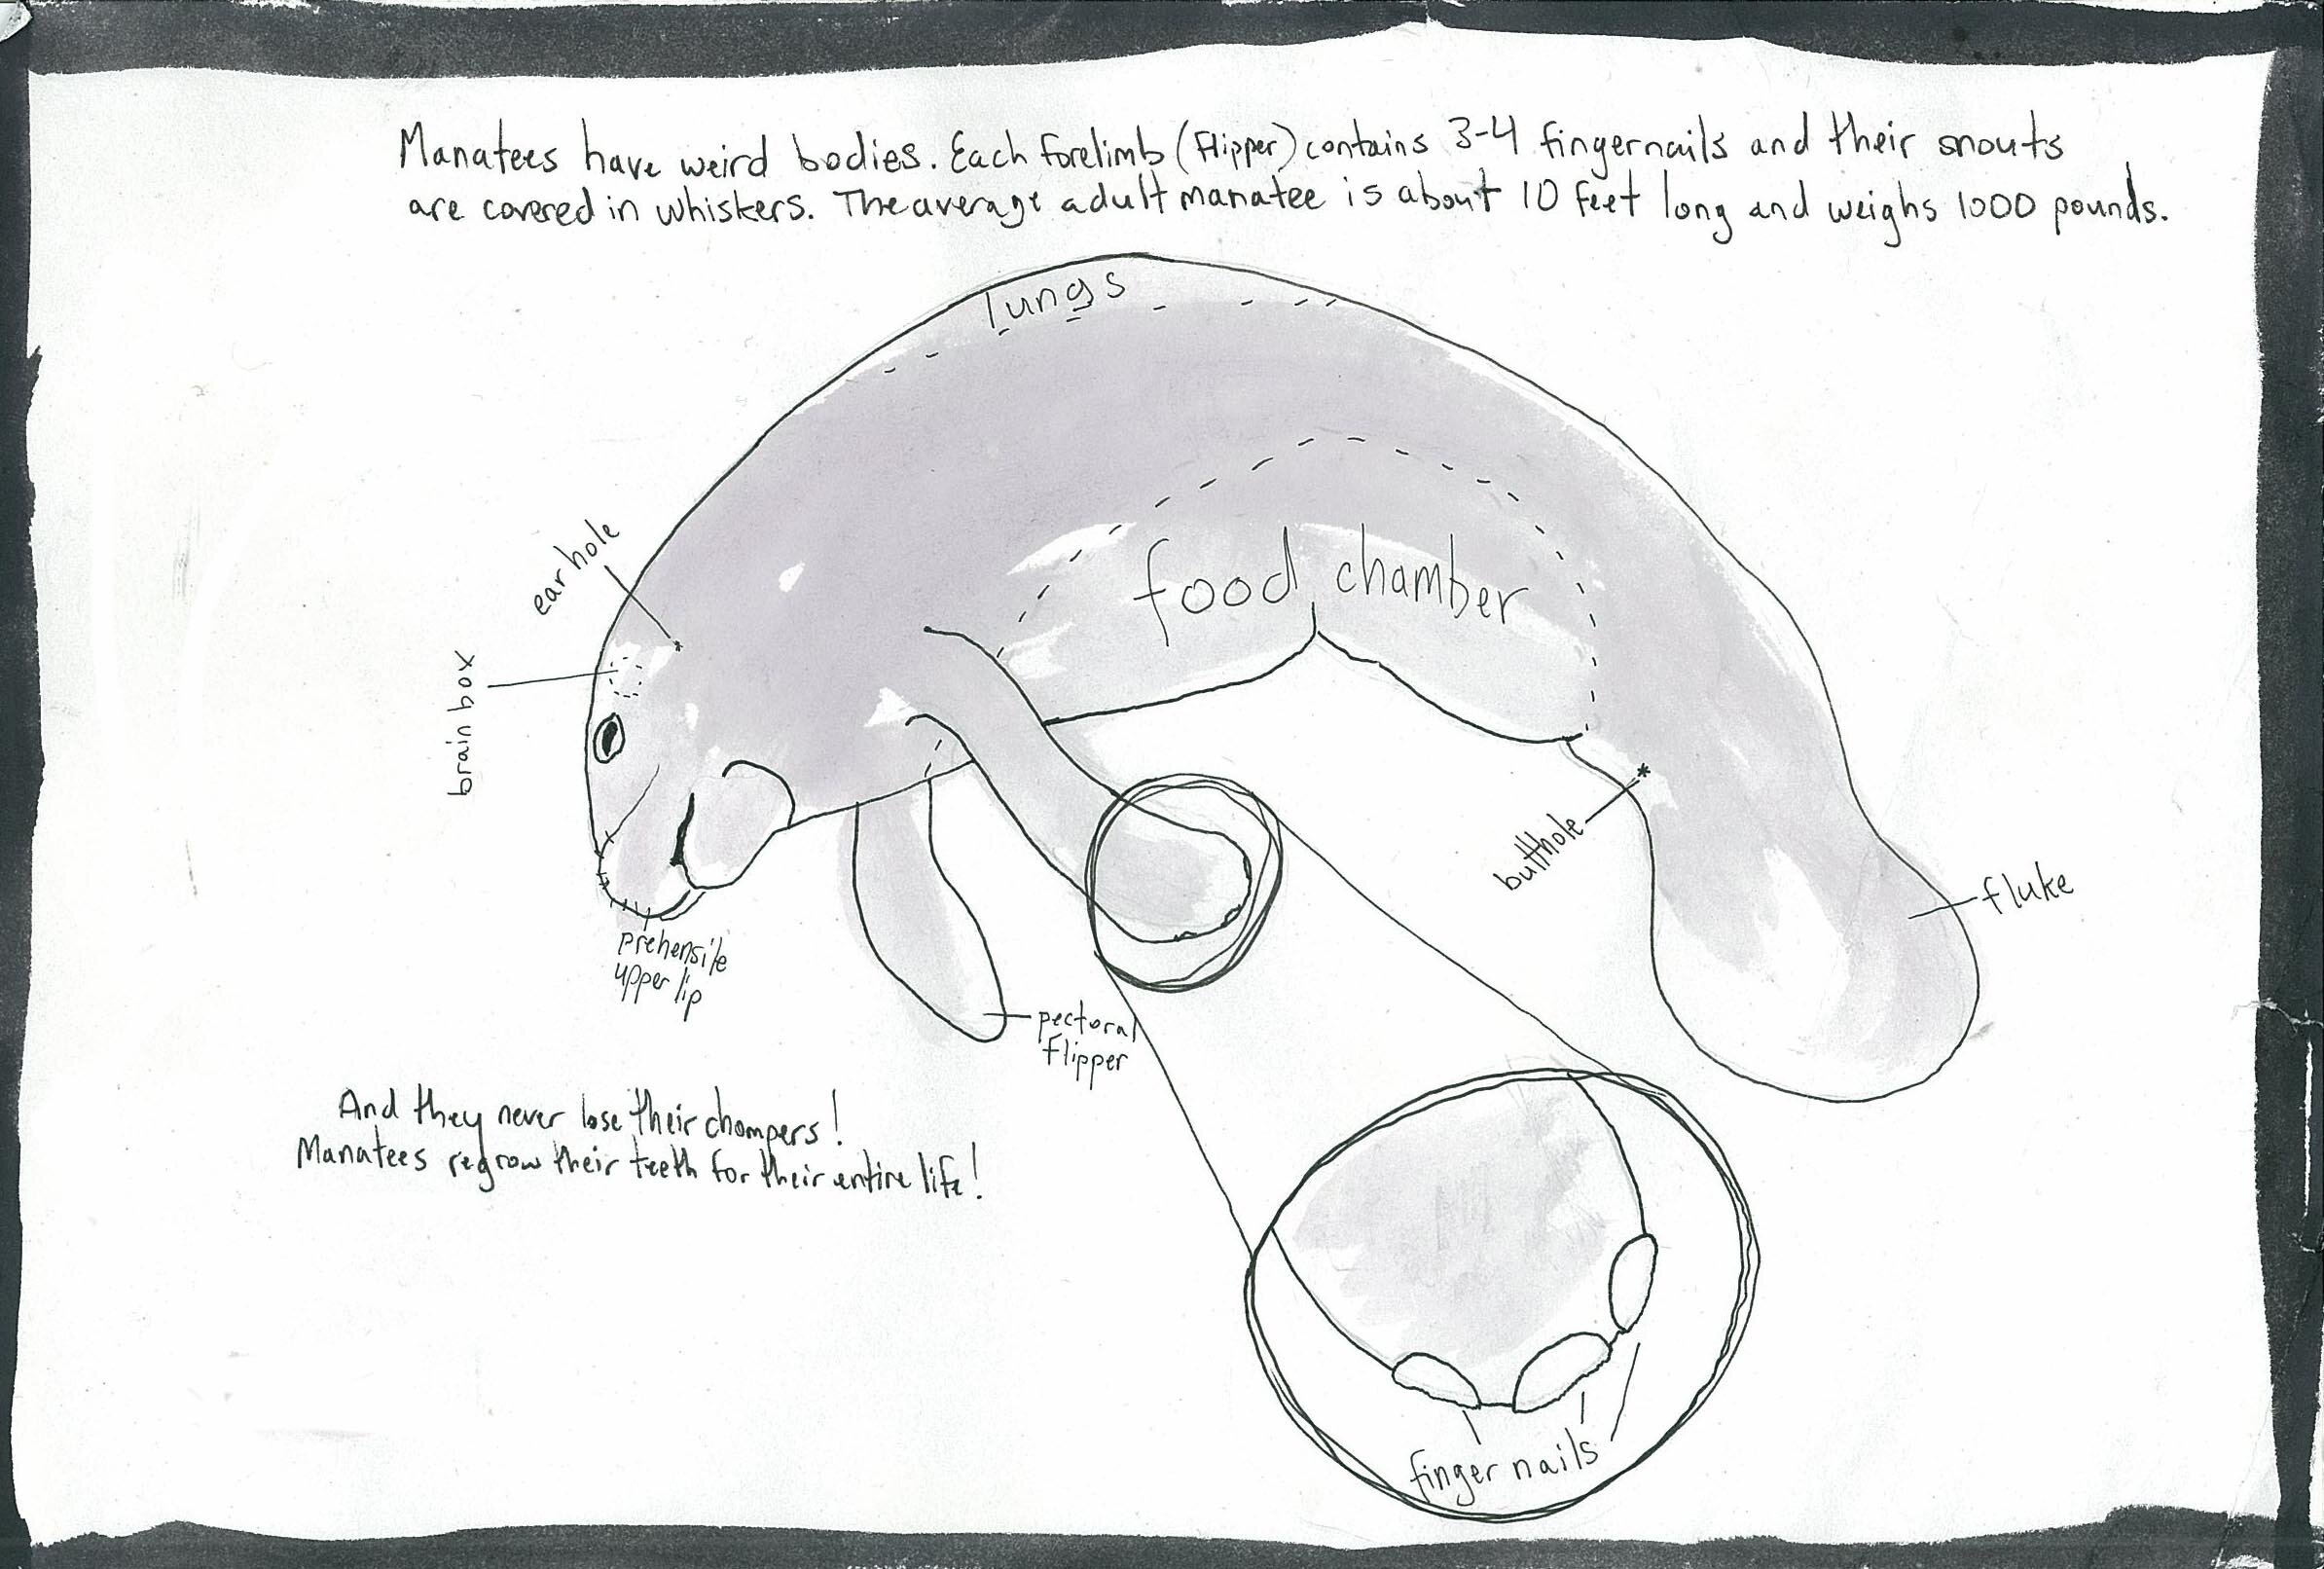 Manatees have weird bodies. Each forelimb (flipper) contains 3-4 fingernails and their snouts
are covered in whiskers. The average adult manatee is about 10 feet long and weighs 1000 pounds.
lungs
ear hole
food chamber
brain box
butthole
fluke
prehensile
upper lip
pectoral
flipper
And they never lose their chompers!
Manatees regrow their teeth for their entire life!
finger nails